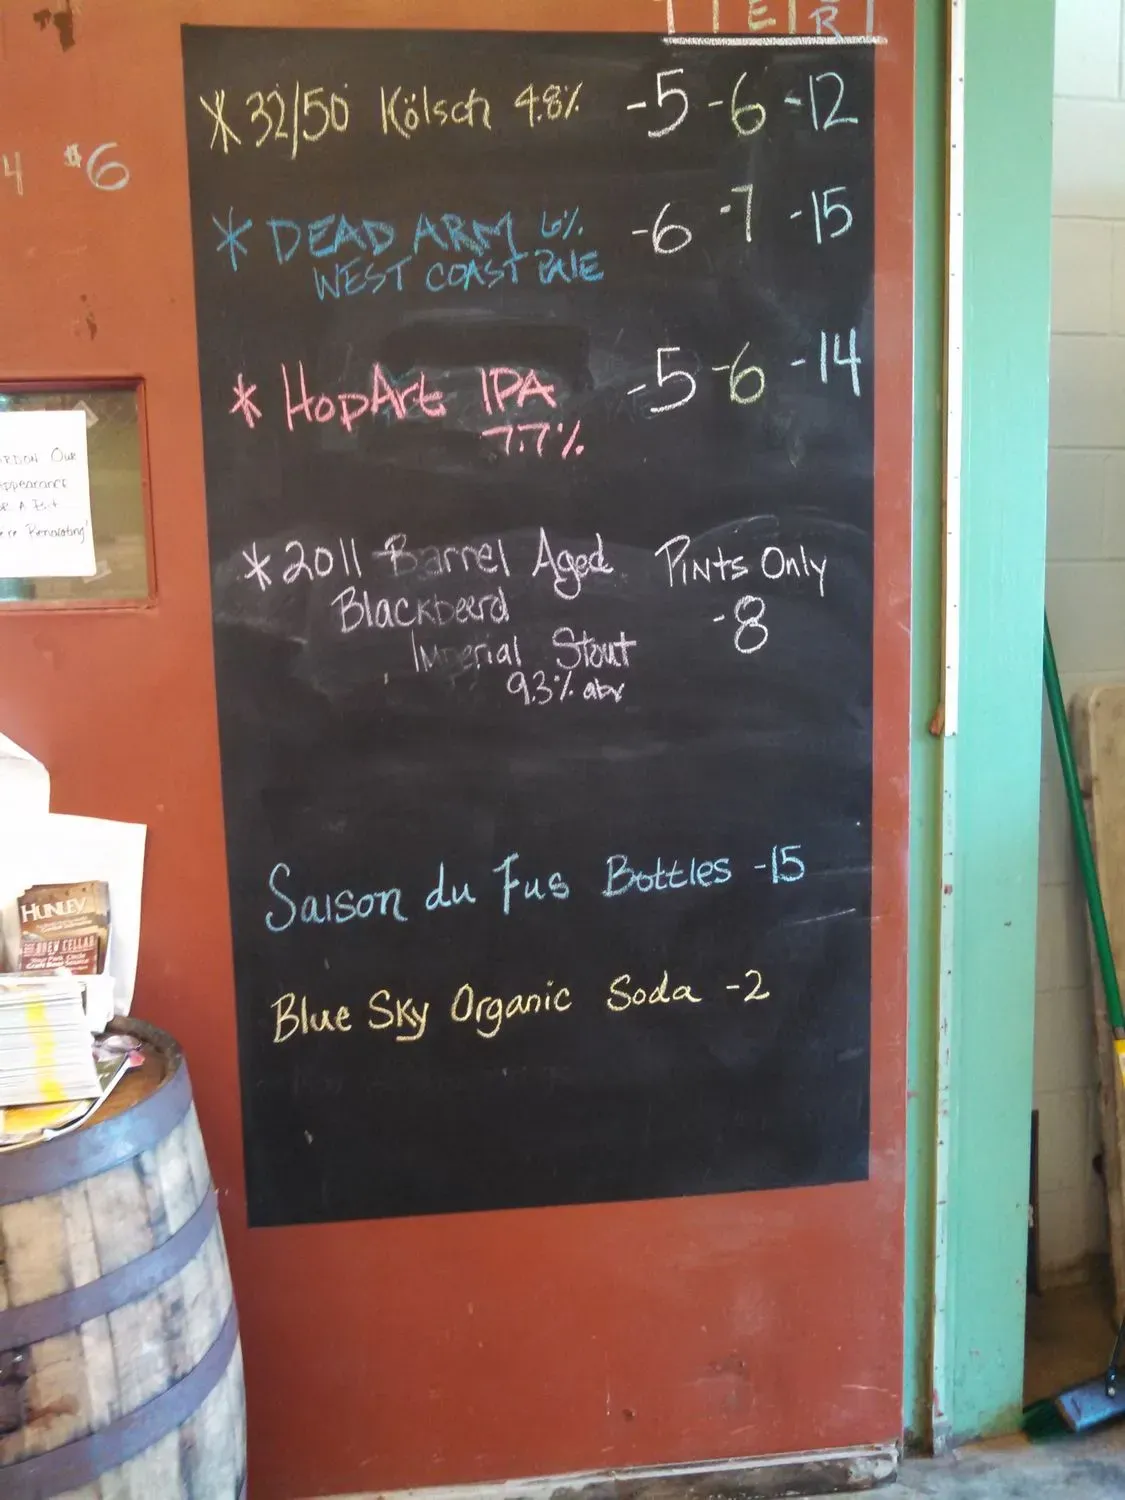 E R
* 32/50 Kölsch 4.8% -5 -6 -12
4 $6
* DEAD ARM 6% -6 -7 -15
WEST COAST PALE
* HopArt IPA -5 -6 -14
7.7%
* 2011 Barrel Aged Pints Only
Blackbeerd -8
Imperial Stout
9.3% abv
Our
Appearance
Renovating!
Saison du Fus Bottles -15
HUNLEY
BREW CELLAR
Blue Sky Organic Soda -2